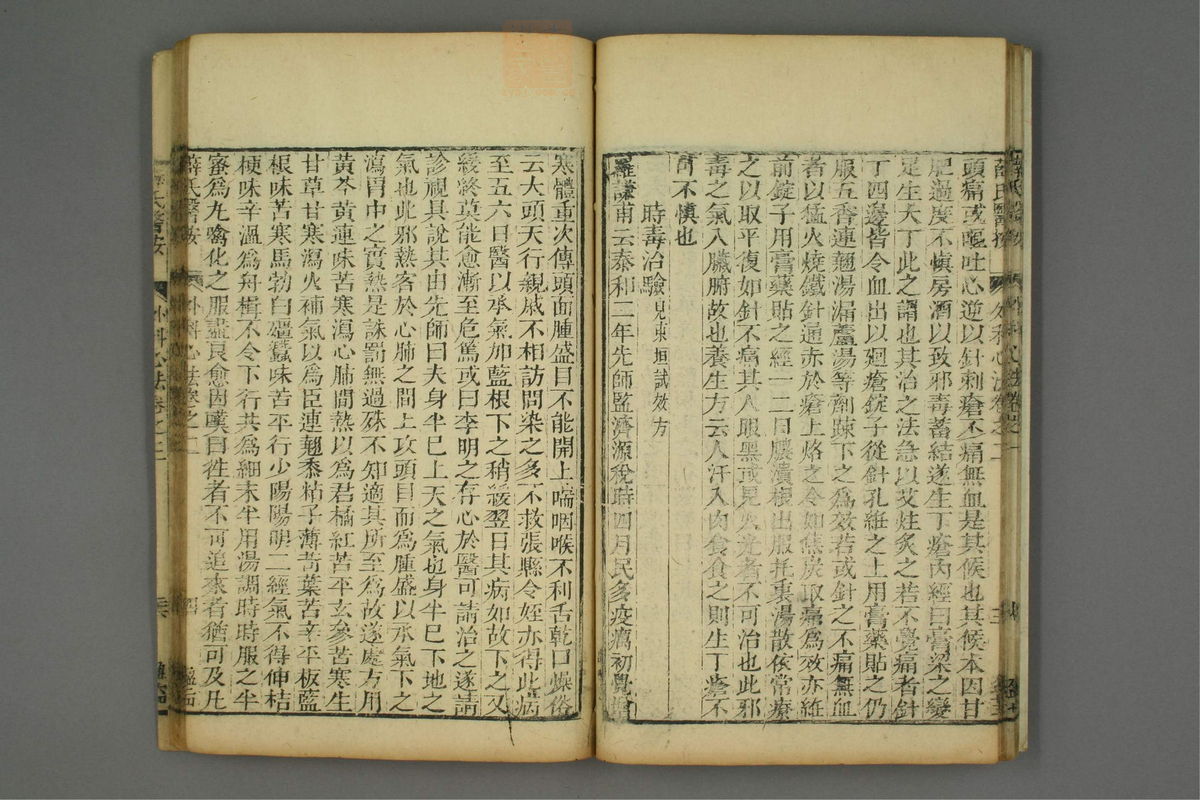 頭痛或嘔吐心逆以針刺瘡不痛無血是其候也其候本因甘
肥過度不慎房酒以致邪毒蓄結遂生丁瘡內經曰膏粱之變
足生大丁此之謂也其治之法急以艾炷灸之若不覺痛者針
丁四邊皆令血出以廻瘡錠子從針孔紝之上用膏藥貼之仍
服五香連翹湯漏蘆湯等劑踈下之為效若或針之不痛無血
者以猛火燒鐵針通赤於瘡上烙之令如焦炭取痛為效亦紝
前錠子用膏藥貼之經一二日膿潰根出服托裏湯散依常療
之以取平復如針不痛其人眼黑或見火光者不可治也此邪
毒之氣入臟腑故也養生方云人汗入肉食食之則生丁瘡不
可不慎也
時毒治驗見東垣試效方
羅謙甫云泰和二年先師監濟源稅時四月民多疫癘初覺憎
寒體重次傳頭面腫盛目不能開上喘咽喉不利舌乾口燥俗
云大頭天行親戚不相訪問染之多不救張縣令姪亦得此病
至五六日醫以承氣加藍根下之稍緩翌日其病如故下之又
緩終莫能愈漸至危篤或曰李明之存心於醫可請治之遂請
診視具說其由先師曰夫身半巳上天之氣也身半巳下地之
氣也此邪熱客於心肺之間上攻頭目而為腫盛以承氣下之
瀉胃中之實熱是誅罰無過殊不知適其所至為故遂處方用
黃芩黃連味苦寒瀉心肺間熱以為君橘紅苦平玄參苦寒生
甘草甘寒瀉火補氣以為臣連翹黍粘子薄苛葉苦辛平板藍
根味苦寒馬勃白殭蠶味苦平行少陽陽明二經氣不得伸桔
梗味辛溫為舟楫不令下行共為細末半用湯調時時服之半
蜜為丸噙化之服盡良愈因嘆曰徃者不可追來者猶可及凡
薛氏醫按 外科心法卷之二